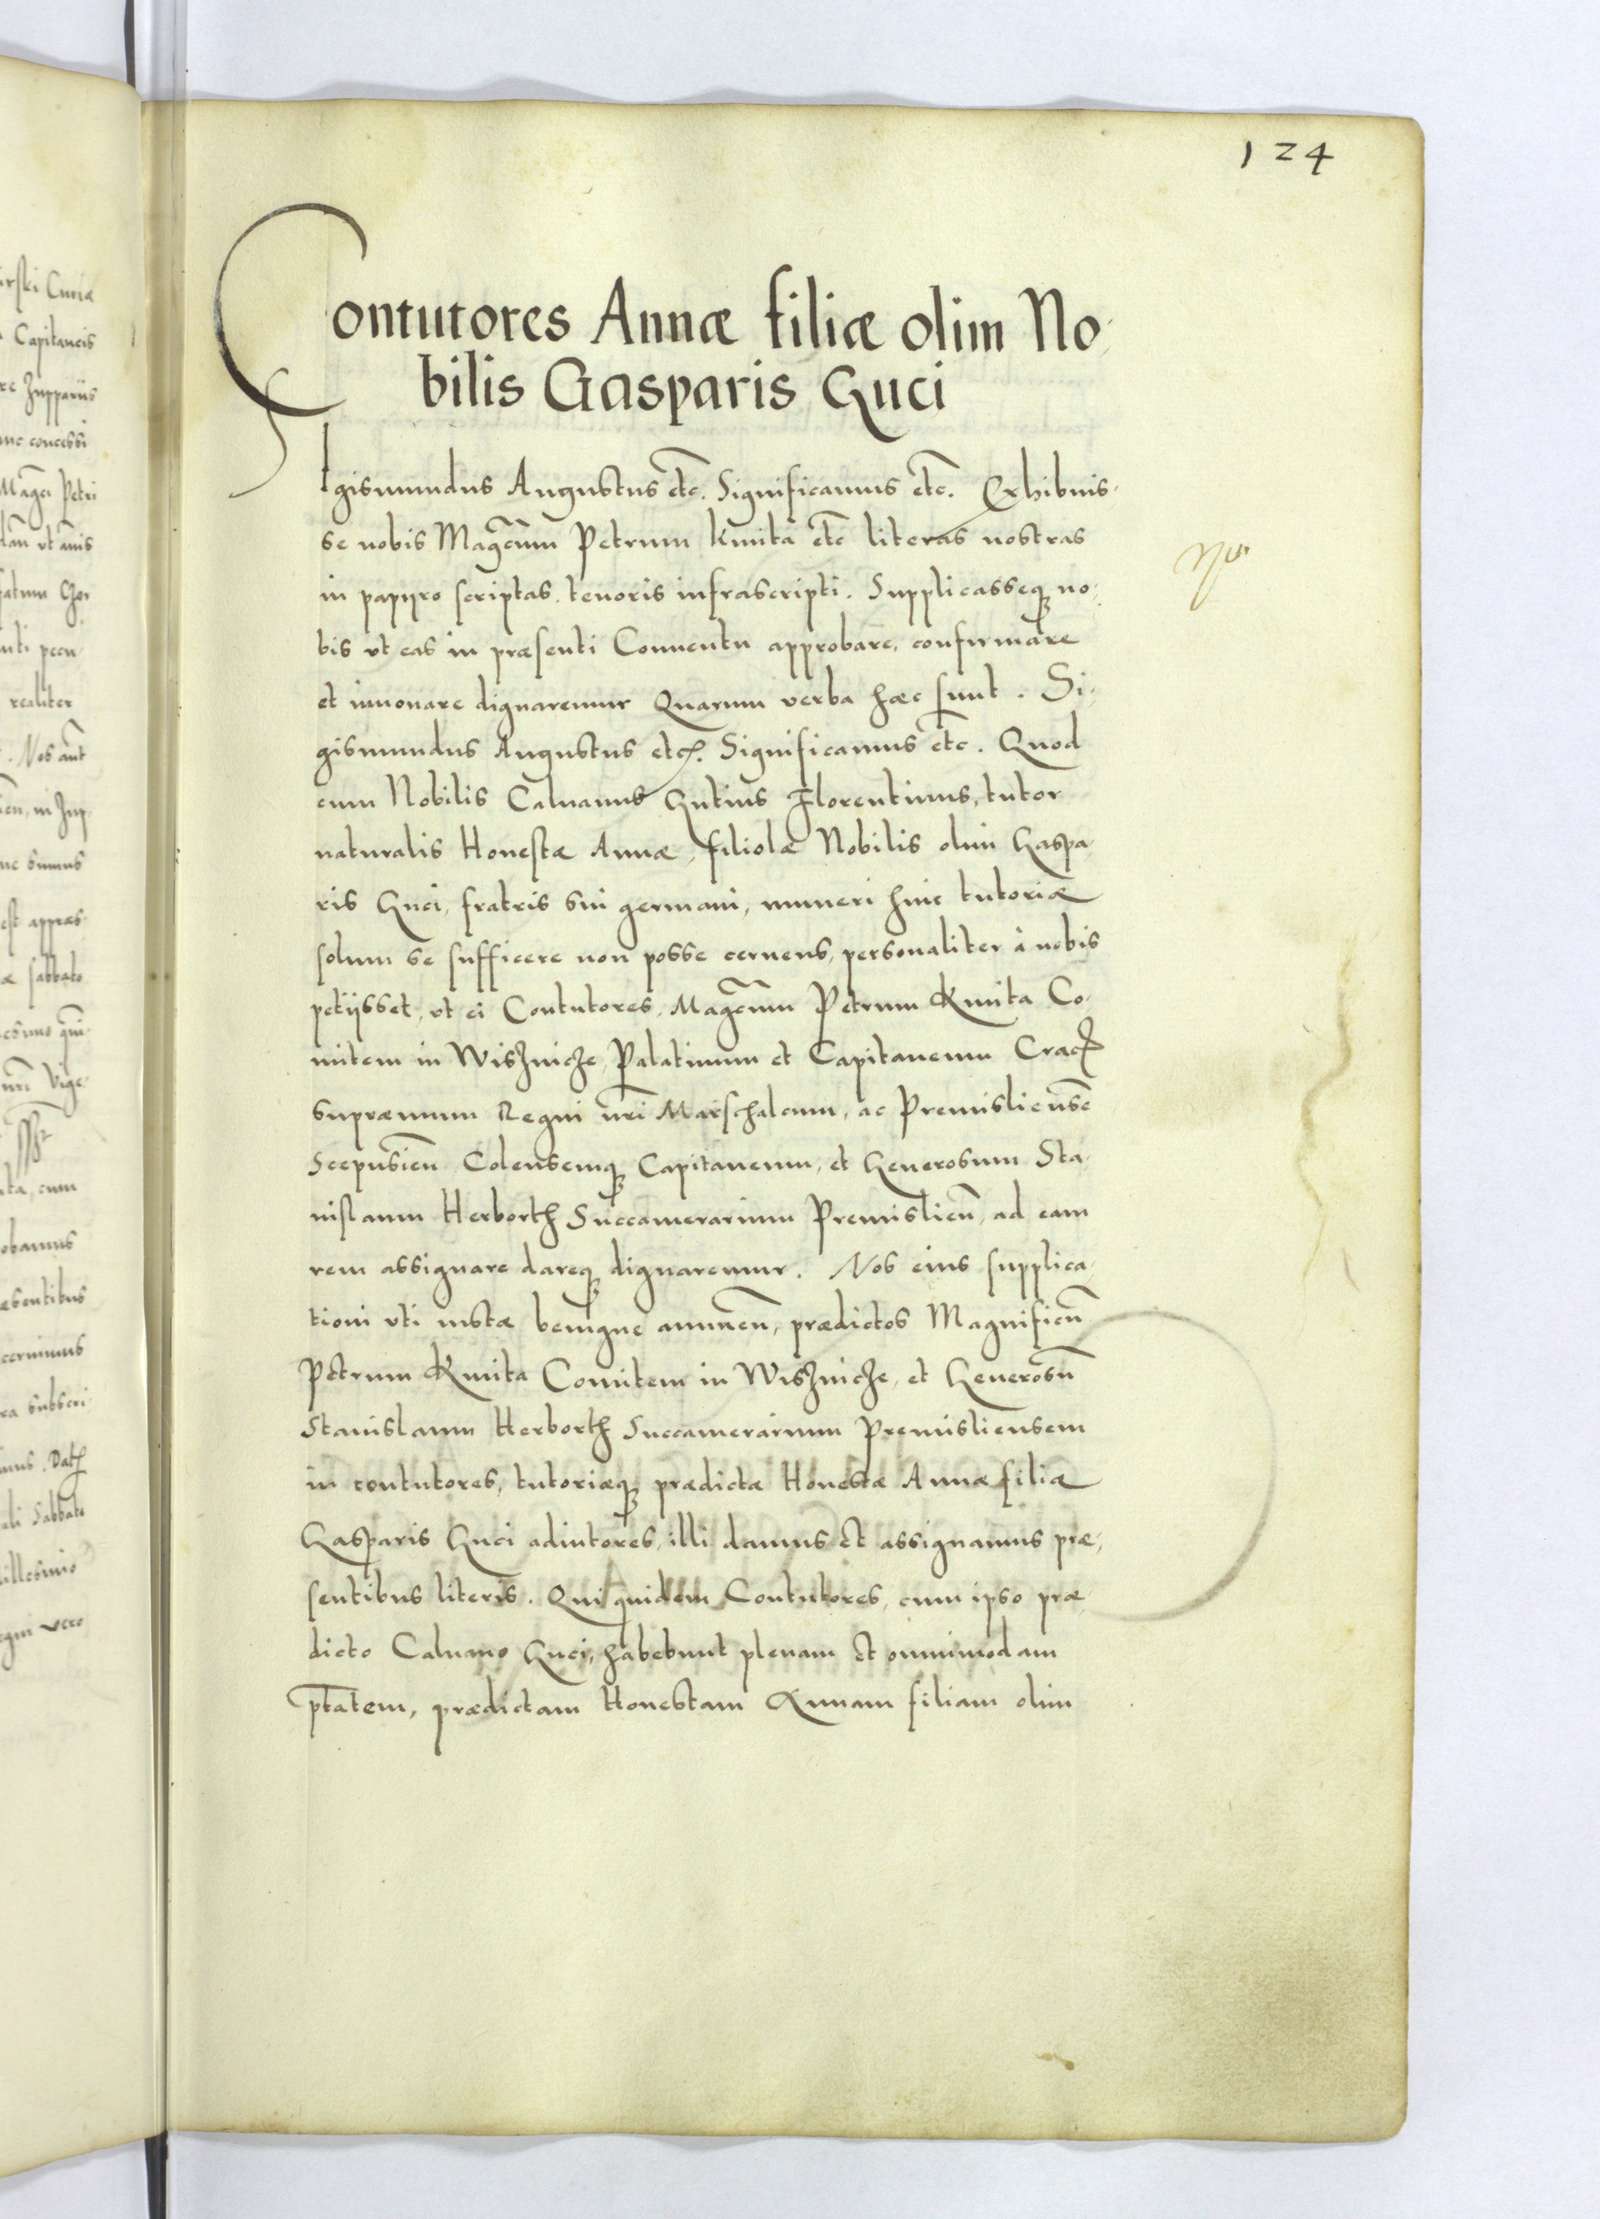 124
Contutores Annæ filiæ olim No-
bilis Gasparis Guci
Sigismundus Augustus etc. Significamus etc. Exhibuis-
se nobis Magcum Petrum Kmita etc literas nostras
in papyro scriptas, tenoris infrascripti. Supplicasseq; no-
bis vt eas in præsenti Conuentu approbare, confirmare
et innouare dignaremur Quarum verba hæc sunt. Si-
gismundus Augustus etc. Significamus etc. Quod
cum Nobilis Caluanus Gutius Florentinus, tutor
naturalis Honestæ Annæ, filiolæ Nobilis olim Gaspa-
ris Guci, fratris sui germani, muneri huic tutoriæ
solum se sufficere non posse cernens, personaliter à nobis
petijsset, vt ei Contutores, Magcum Petrum Kmita Co-
mitem in Wisznicze, Palatinum et Capitaneum Crac
supræmum Regni nri Marschalcum, ac Premisliense
Scepusien Colensemq; Capitaneum, et Generosum Sta-
nislaum Herborth Succamerarium Premislien, ad eam
rem assignare dareq; dignaremur. Nos eius supplica-
tioni vti iustæ benigne annuen, prædictos Magnificu
Petrum Kmita Comitem in Wisznicze, et Generosu
Stanislaum Herborth Succamerarium Premisliensem
in contutores, tutoriæq; prædictæ Honestæ Annæ filiæ
Gasparis Guci adiutores, illi damus et assignamus præ-
sentibus literis. Qui quidem Contutores, cum ipso præ-
dicto Caluano Guci, habebunt plenam et omnimodam
ptatem, prædictam Honestam Annam filiam olim